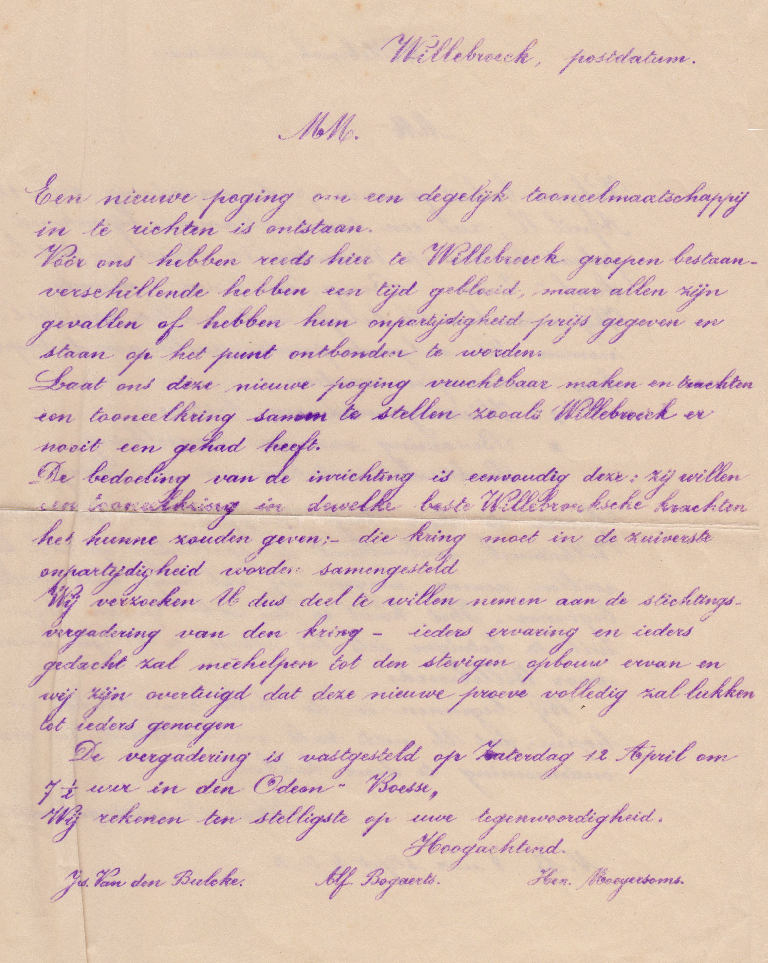 Willebroeck, postdatum.
MM.
Een nieuwe poging om een degelijk tooneelmaatschappij
in te richten is ontstaan.
Vóór ons hebben reeds hier te Willebroeck groepen bestaan-
verschillende hebben een tijd gebloeid, maar allen zijn
gevallen of hebben hun onpartijdigheid prijs gegeven en
staan op het punt ontbonden te worden.
Laat ons deze nieuwe poging vruchtbaar maken en trachten
een tooneelkring samen te stellen zooals Willebroeck er
nooit een gehad heeft.
De bedoeling van de inrichting is eenvoudig deze: zij willen
een tooneelkring in dewelke beste Willebroeksche krachten
het hunne zouden geven;- die kring moet in de zuiverste
onpartijdigheid worden samengesteld
Wij verzoeken U dus deel te willen nemen aan de stichtings-
vergadering van den kring - ieders ervaring en ieders
gedacht zal meêhelpen tot den stevigen opbouw ervan en
wij zijn overtuigd dat deze nieuwe proeve volledig zal lukken
tot ieders genoegen
De vergadering is vastgesteld op Zaterdag 12 April om
7 ½ uur in den Odeon "Boesse„
Wij rekenen ten stelligste op uwe tegenwoordigheid.
Hoogachtend.
Jos. Van den Bulcke. Alf. Bogaerts. Hen. Moeyersoms.